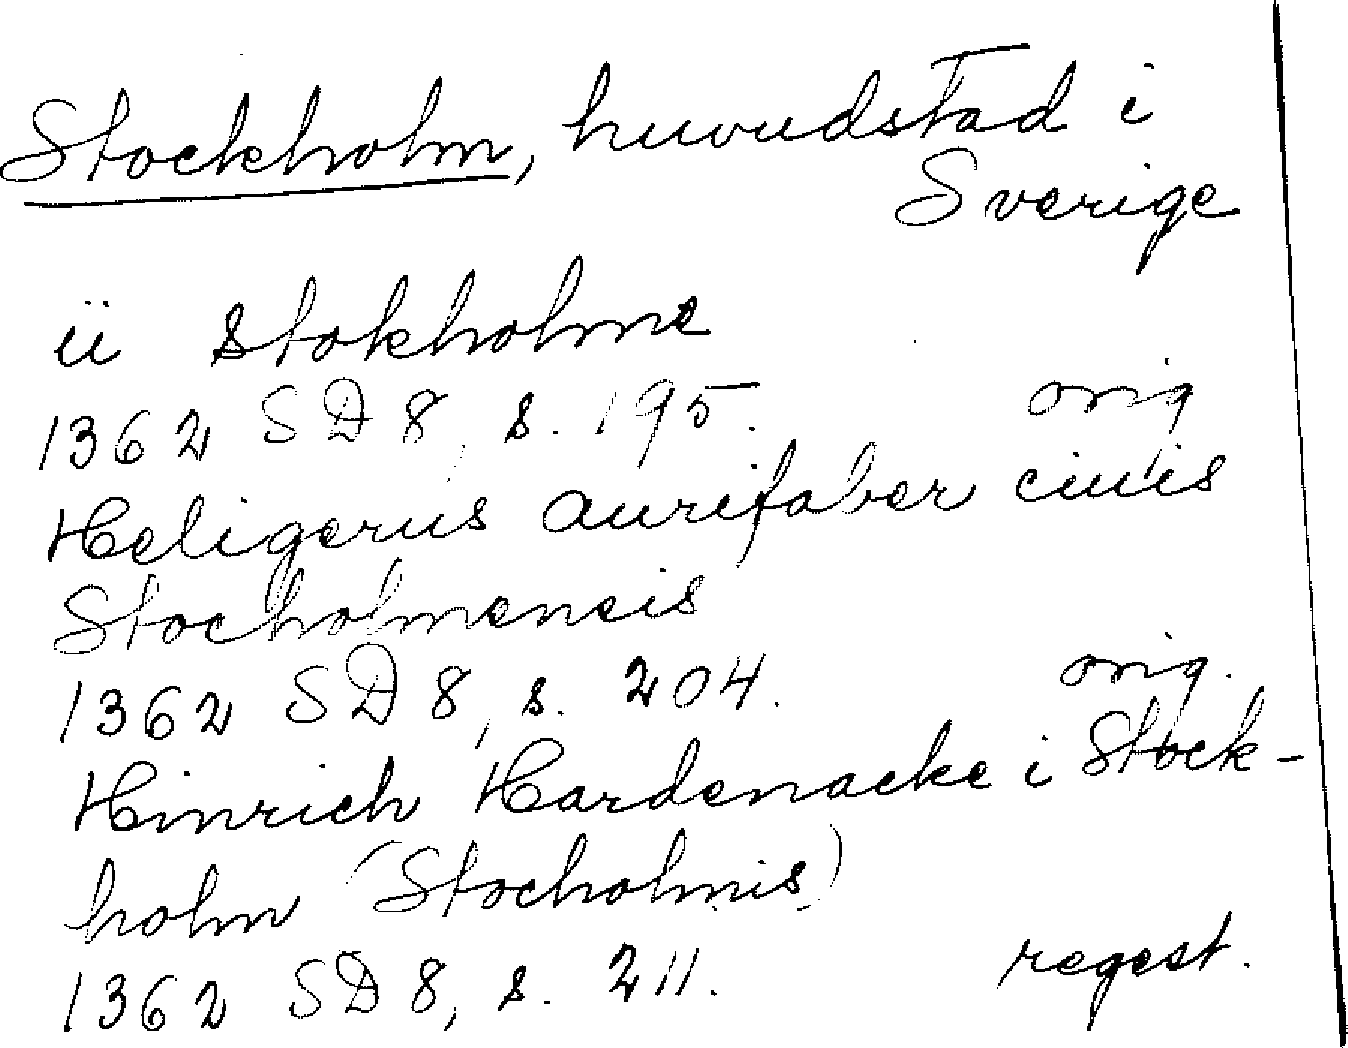 Stockholm, huvudstad i
Sverige
ii Stokholme
1362 SD 8, s. 195. orig
Heligerus aurifaber ciuis
Stocholmensis
1362 SD 8, s. 204. orig.
Hinrich Hardenacke i Stock-
holm (Stocholmis)
1362 SD 8, s. 211. regest.